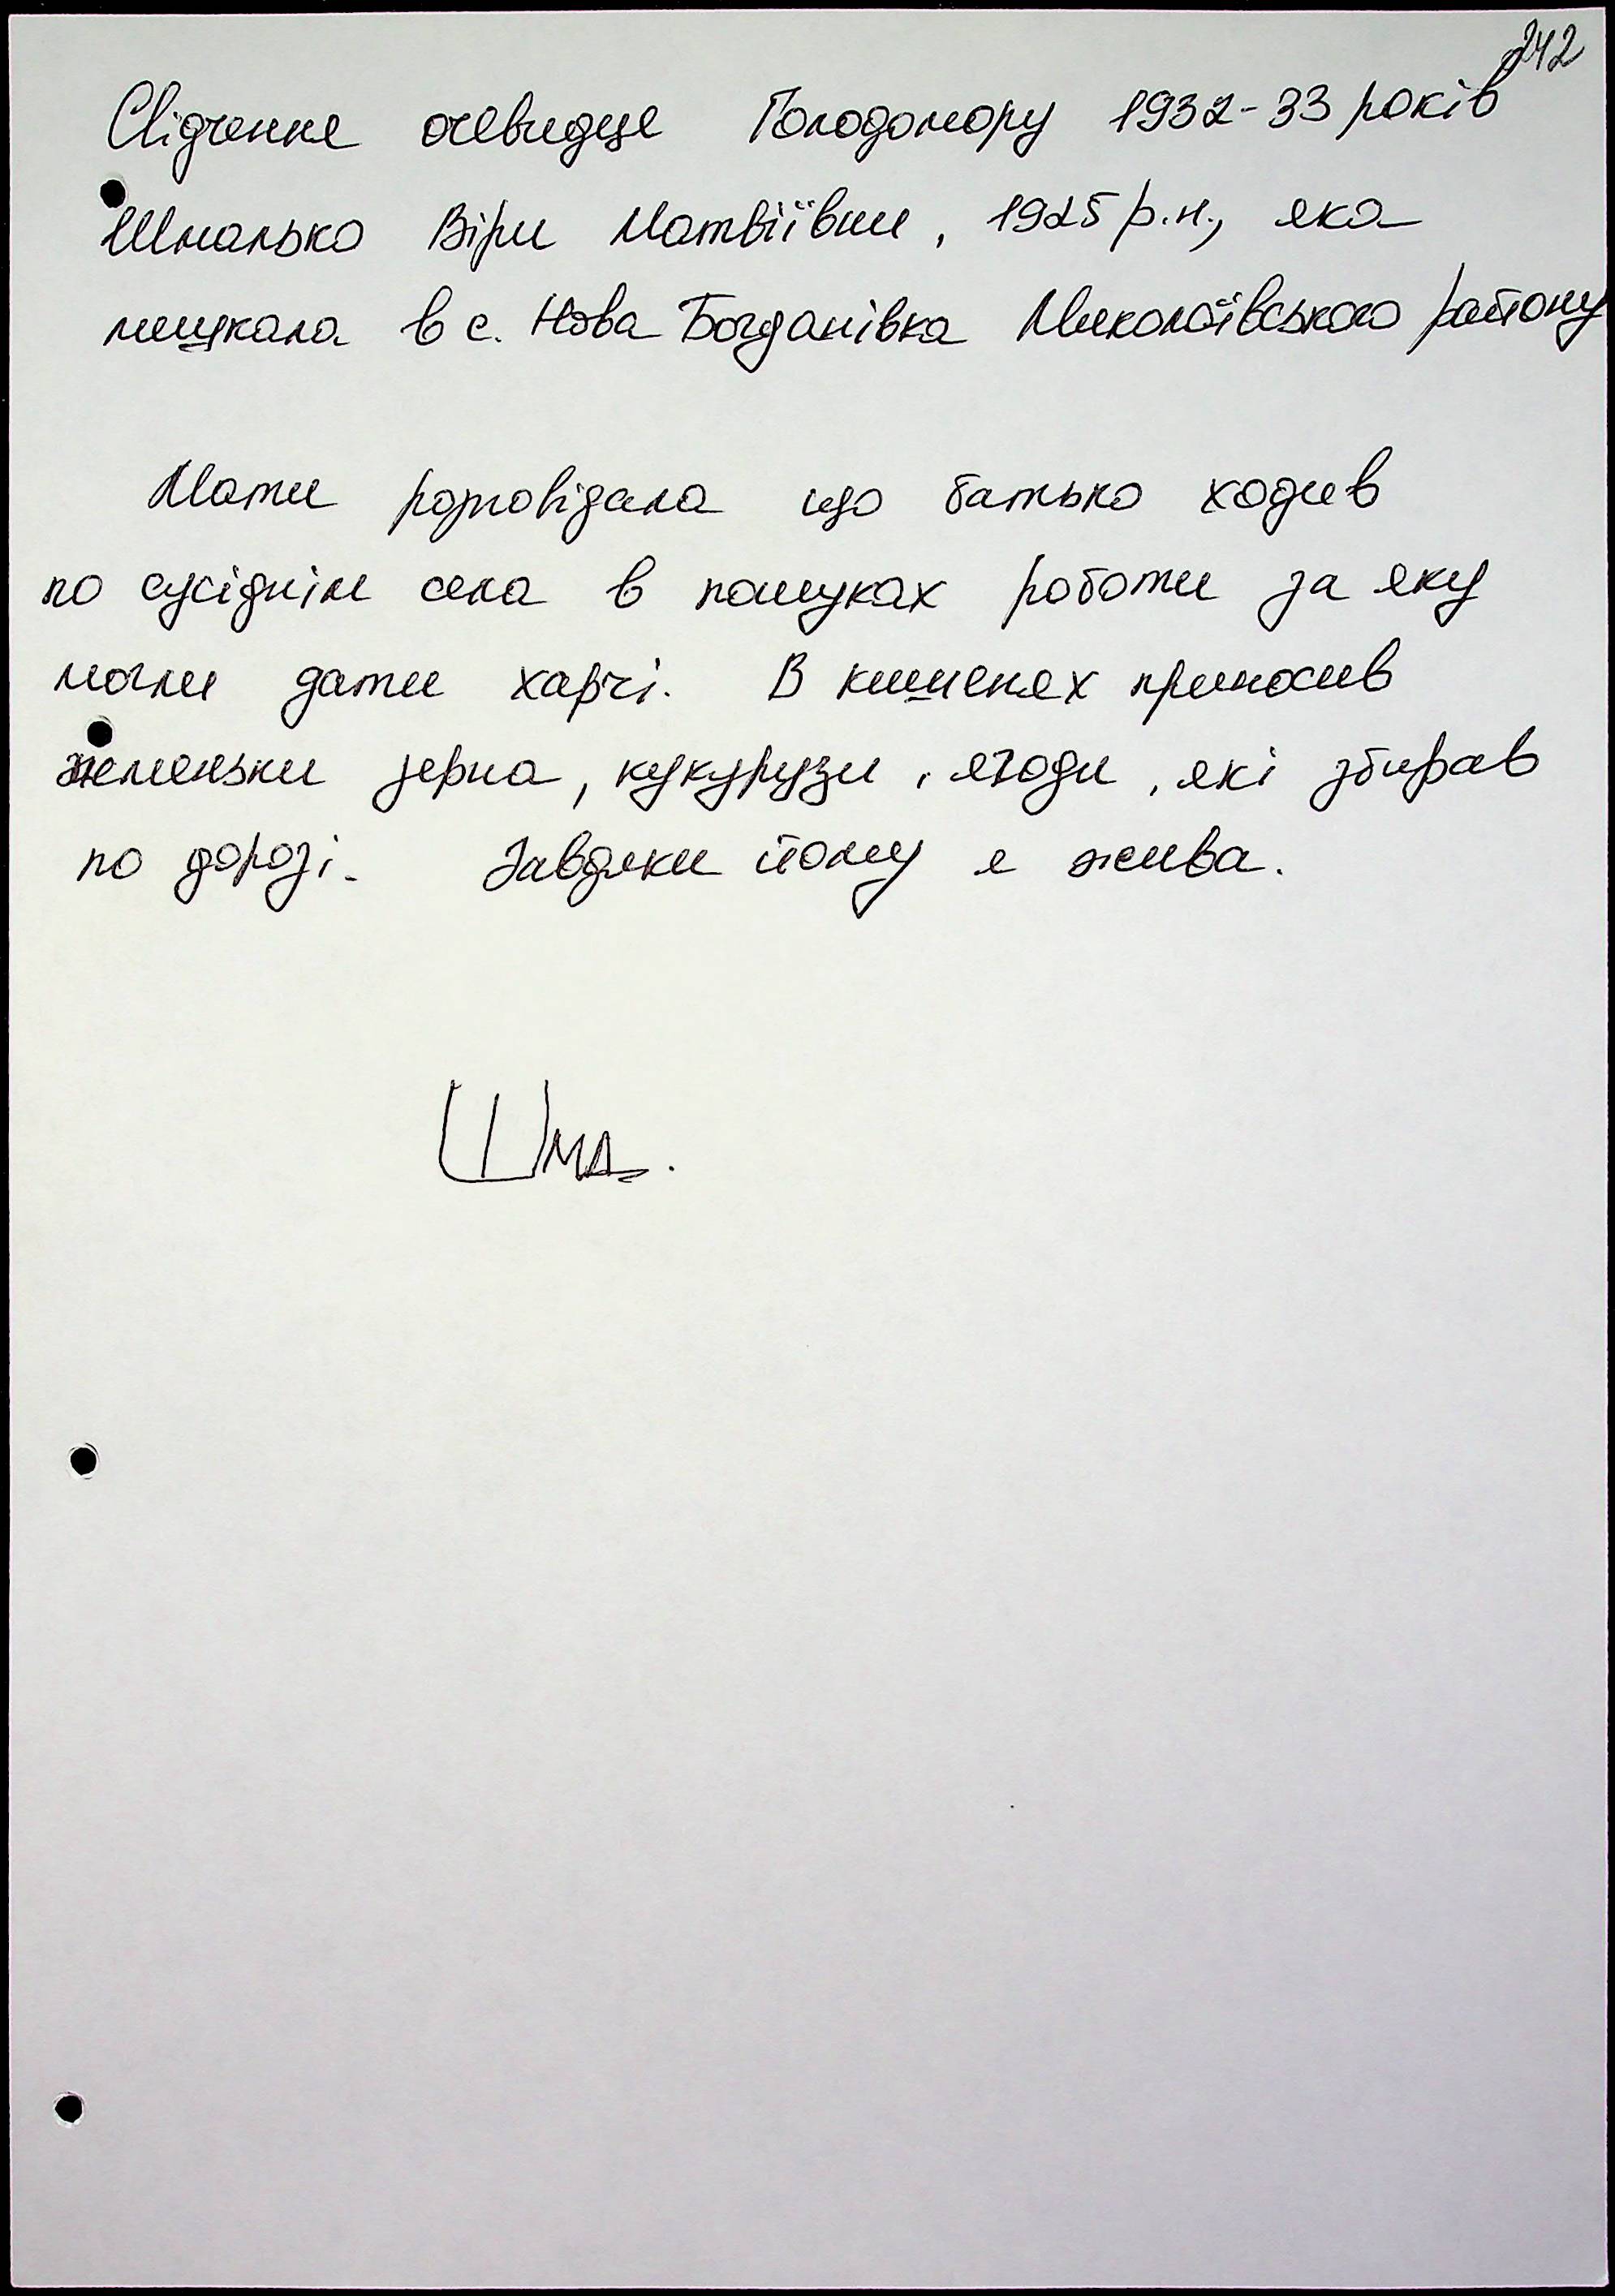 242
Свідчення очевидця Голодомору 1932-33 років
Шмалько Віри Матвіївни, 1925 р.н., яка
мешкала в с. Нова Богданівка Миколаївського району
Мати розповідала що батько ходив
по сусіднім села в пошуках роботи за яку
могли дати харчі. В кишенях приносив
жменьки зерна, кукурузи, ягоди, які збирав
по дорозі. Завдяки йому я жива.
Шма.